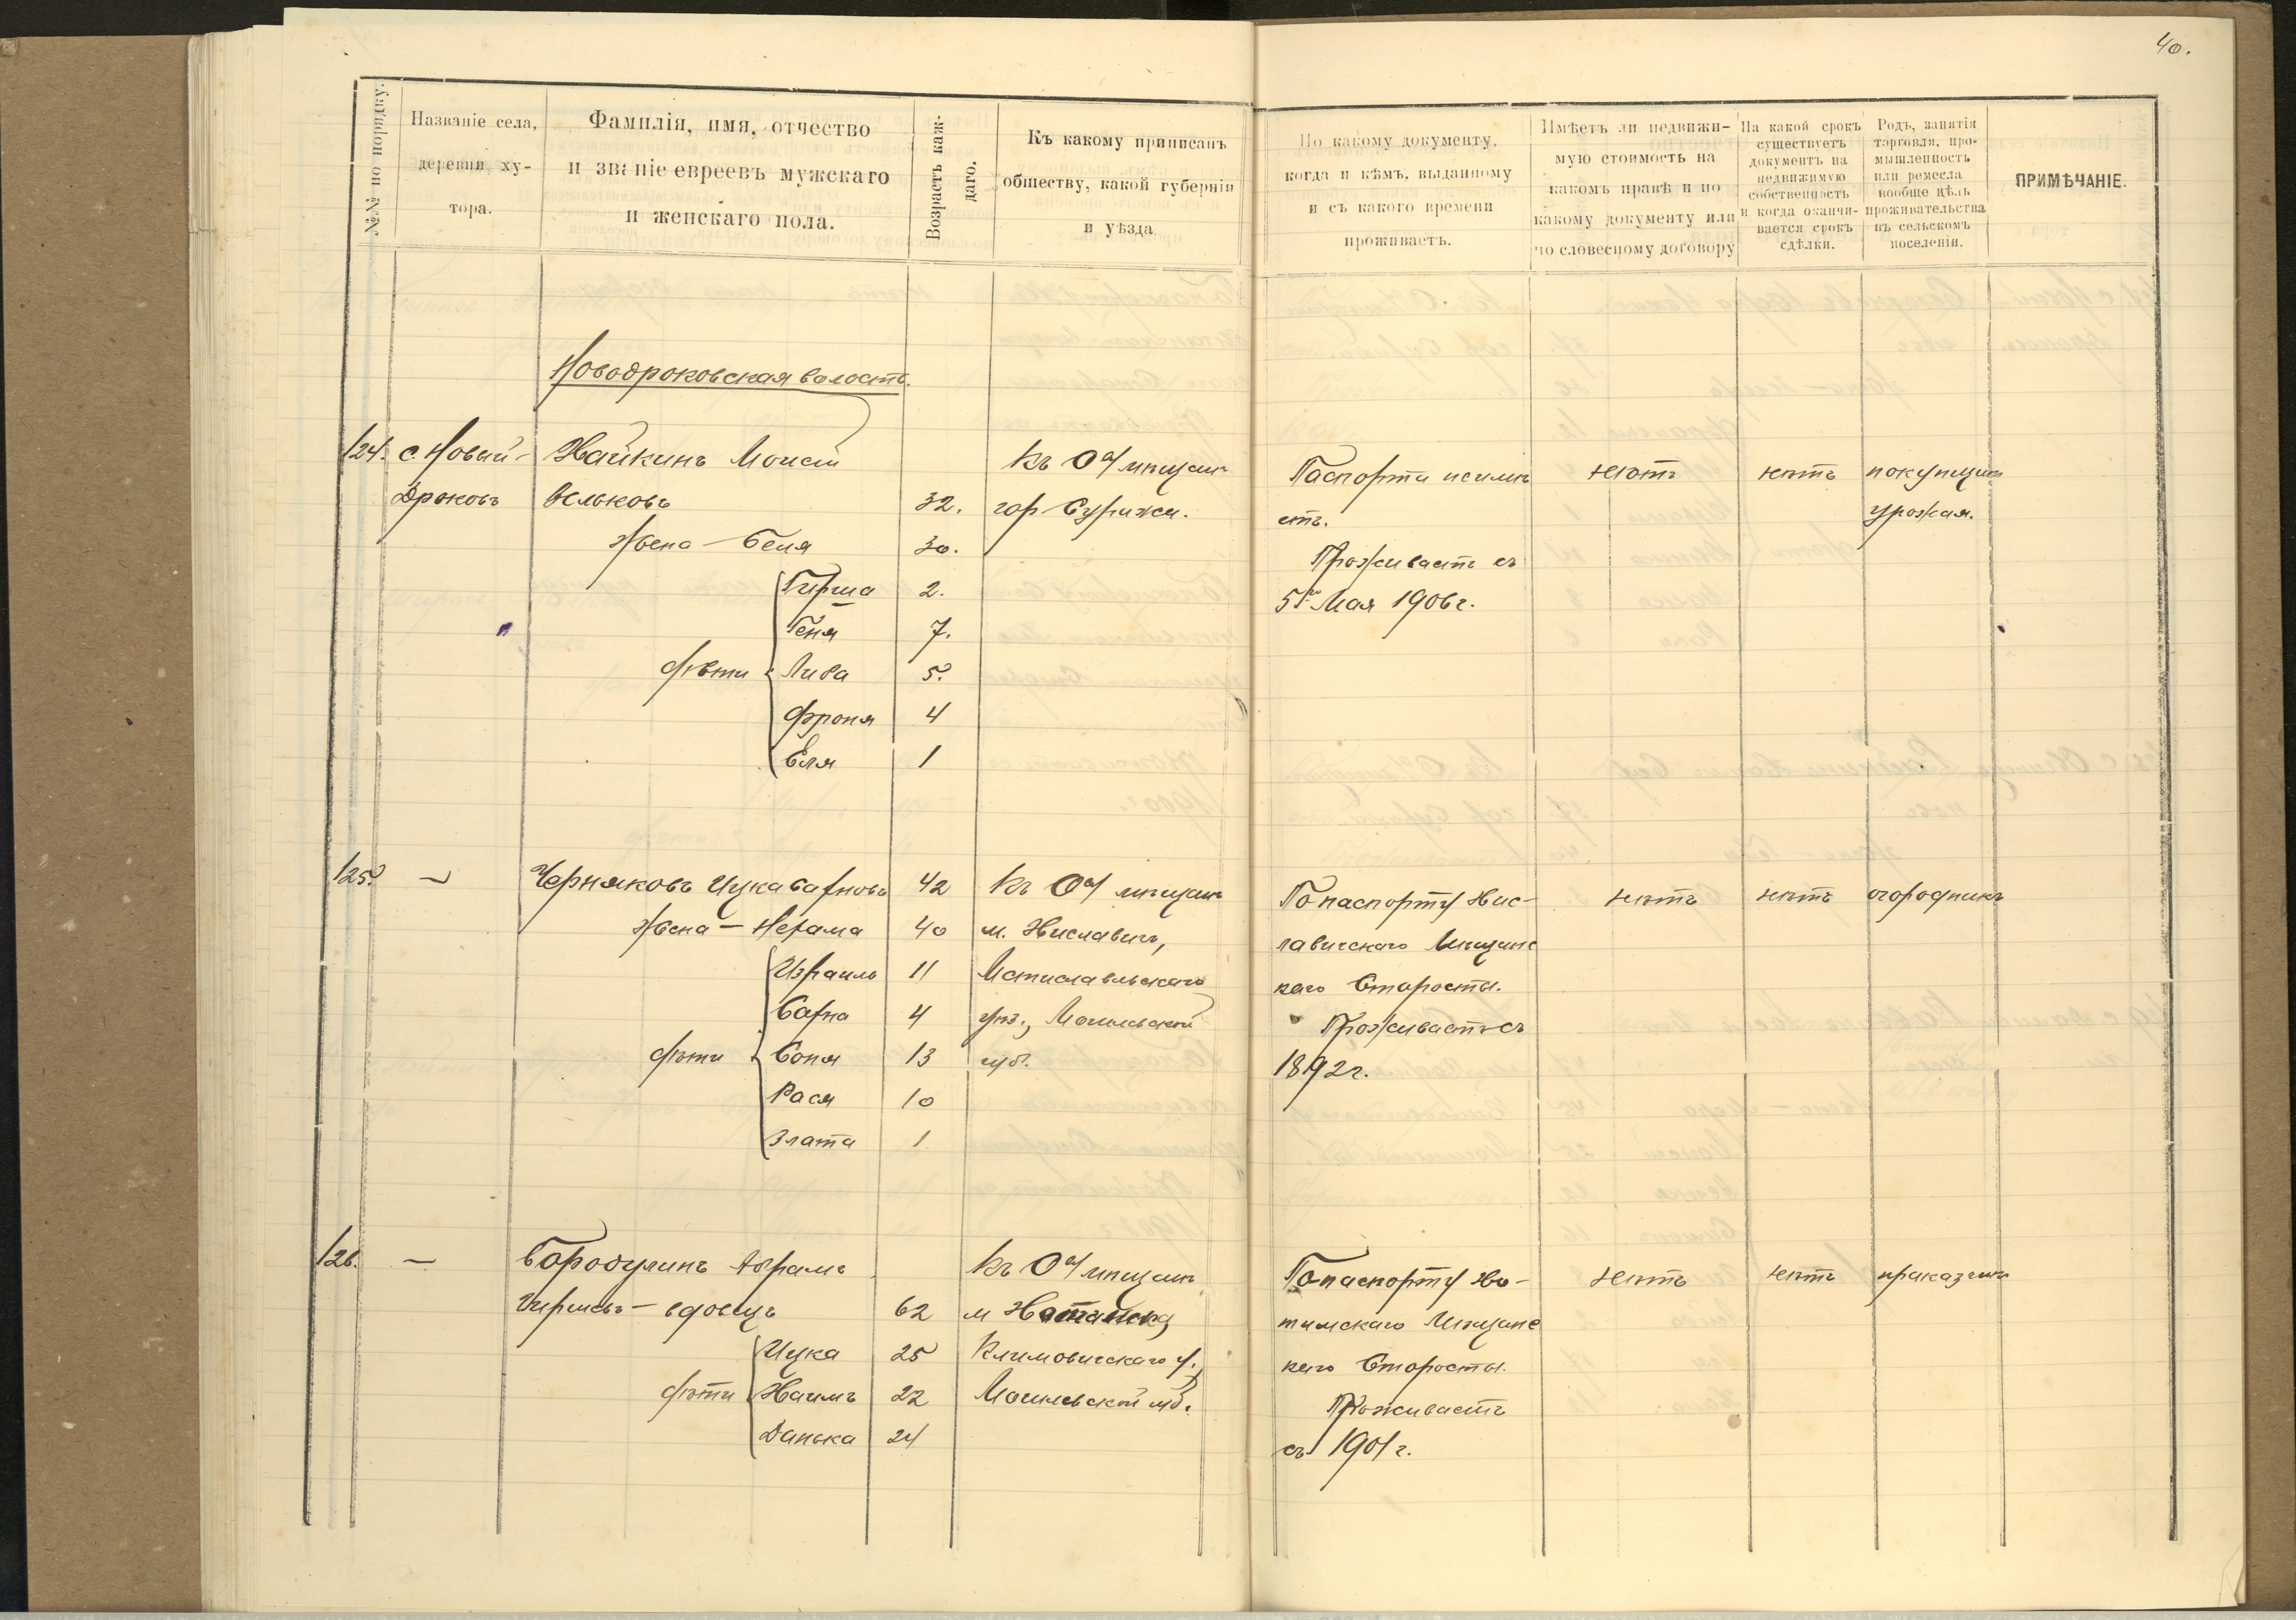 40.
№№ по порядку.
Названіе села, деревни, ху-тора.
Фамилія, имя, отчество и званіе евреевъ мужскаго и женскаго пола.
Возрастъ каж-даго.
Къ какому приписанъ обществу, какой губерніи и уѣзда
По какому документу, когда и кѣмъ, выданному и съ какого времени проживаетъ.
Имѣетъ ли недвижи-мую стоимость на какомъ правѣ и по какому документу или по словесному договору
На какой срокъ существуетъ документъ на недвижимую собственность и когда оканчи-вается срокъ сдѣлки.
Родъ, занятія торговли, про-мышленность или ремесла вообще цѣль проживательства въ сельскомъ поселеніи.
ПРИМѢЧАНІЕ.
Новодроковская волость.
124. с. Новый- Хайкинъ Моисей Къ О-у мѣщанъ Паспорта неимѣ нѣтъ нѣтъ покупщик
Дроковъ Вельковъ 32. гор Суража. етъ. урожая.
Жена - Беля 30. Проживаетъ съ
Гирша 2. 5го Мая 1906 г.
Геня 7.
дѣти Либа 5.
Фроня 4
Еля 1
125. — Черняковъ Ицка Сарновъ 42 Къ О-у мѣщанъ По паспорту Хис- нѣтъ нѣтъ огородникъ
Жена - Нехама 40 м. Хиславичъ, лавичскаго Мѣщанс
Израиль 11 Мстиславльскаго каго Старосты.
Сарна 4 уѣз., Могилевской Проживаетъ съ
дѣти Соня 13 губ. 1892 г.
Рася 10
Злата 1
126. — Бородулинъ Абрамъ Къ О-у мѣщанъ По паспорту Хо- нѣтъ нѣтъ приказчик
Гиршевъ - вдовецъ 62 м тимскаго Мѣщанс
Ицка 25 Климовичскаго у., каго Старосты.
дѣти Хаимъ 22 Могилевской губ. Проживаетъ
Данька 24 съ 1901 г.